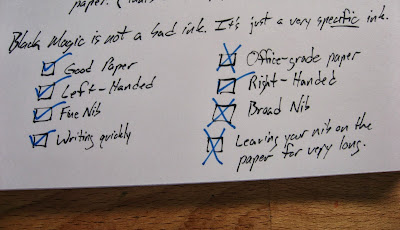 paper.
Black Magic is not a bad ink. It's just a very specific ink.
Good Paper
Left-Handed
Fine Nib
Writing quickly
Office-grade paper
Right-Handed
Broad Nib
Leaving your nib on the
paper for very long.